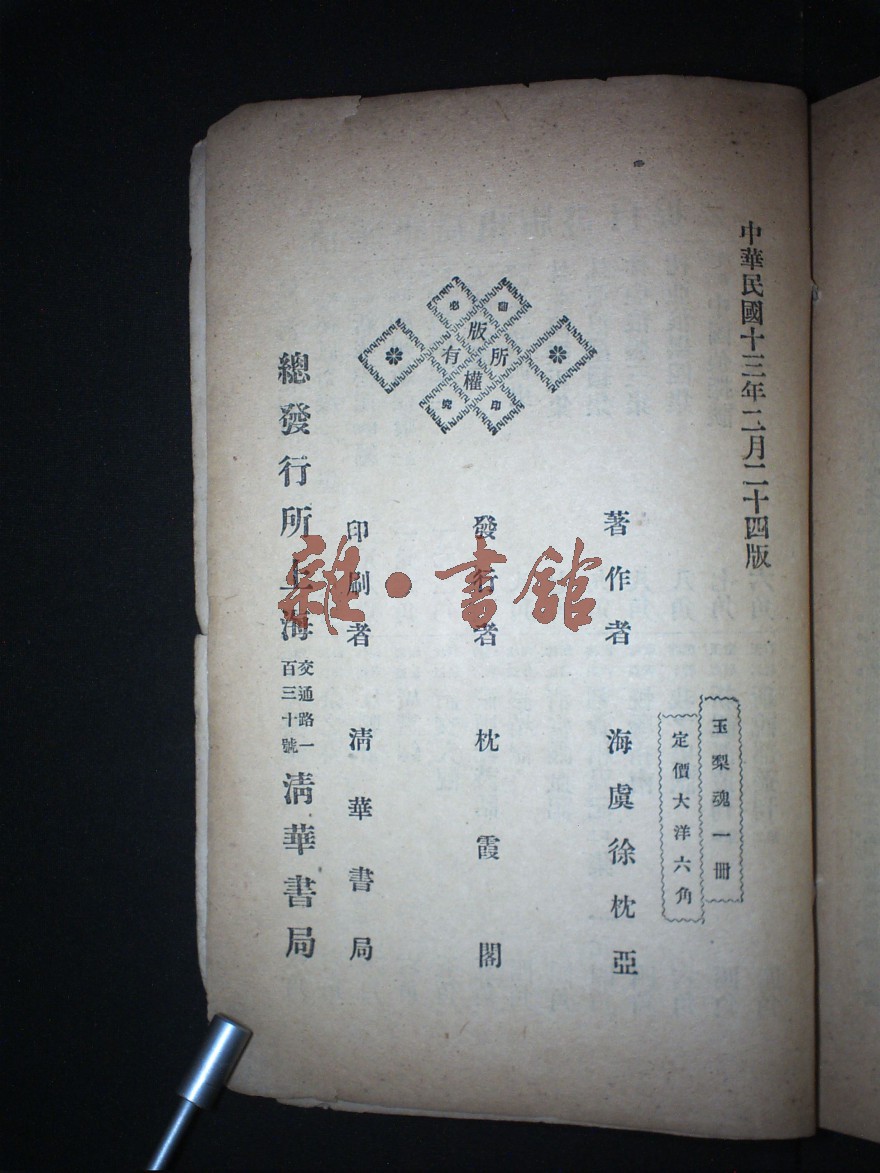 中華民國十三年二月二十四版
玉梨魂一冊
定價大洋六角
著作者 海虞徐枕亞
發行者 枕霞閣
版權所有
翻印必究
印刷者 清華書局
總發行所上海交通路一百三十號清華書局
雜·書館